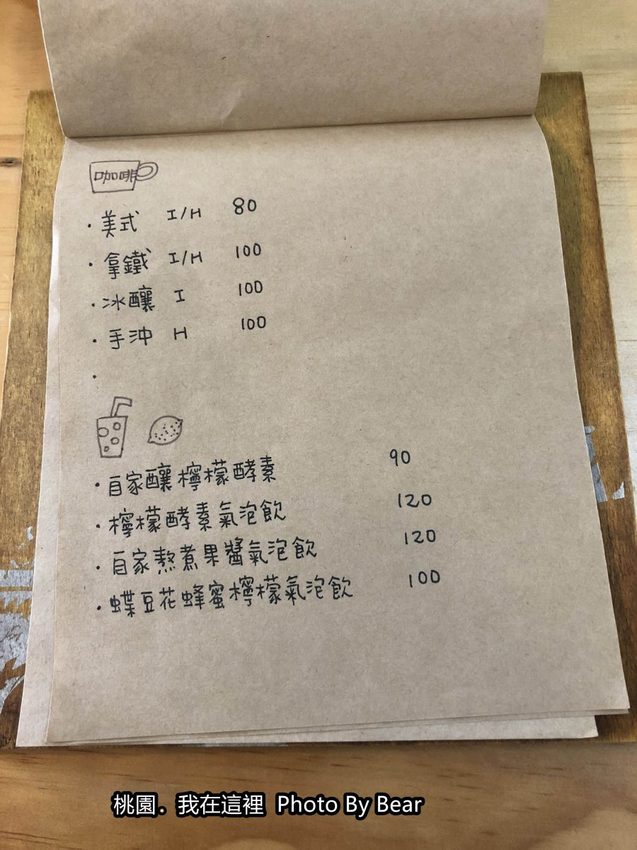 咖啡
·美式 I/H 80
·拿鐵 I/H 100
·冰釀 I 100
·手沖 H 100
·
·自家釀檸檬酵素 90
·檸檬酵素氣泡飲 120
·自家熬煮果醬氣泡飲 120
·蝶豆花蜂蜜檸檬氣泡飲 100
桃園．我在這裡 Photo By Bear